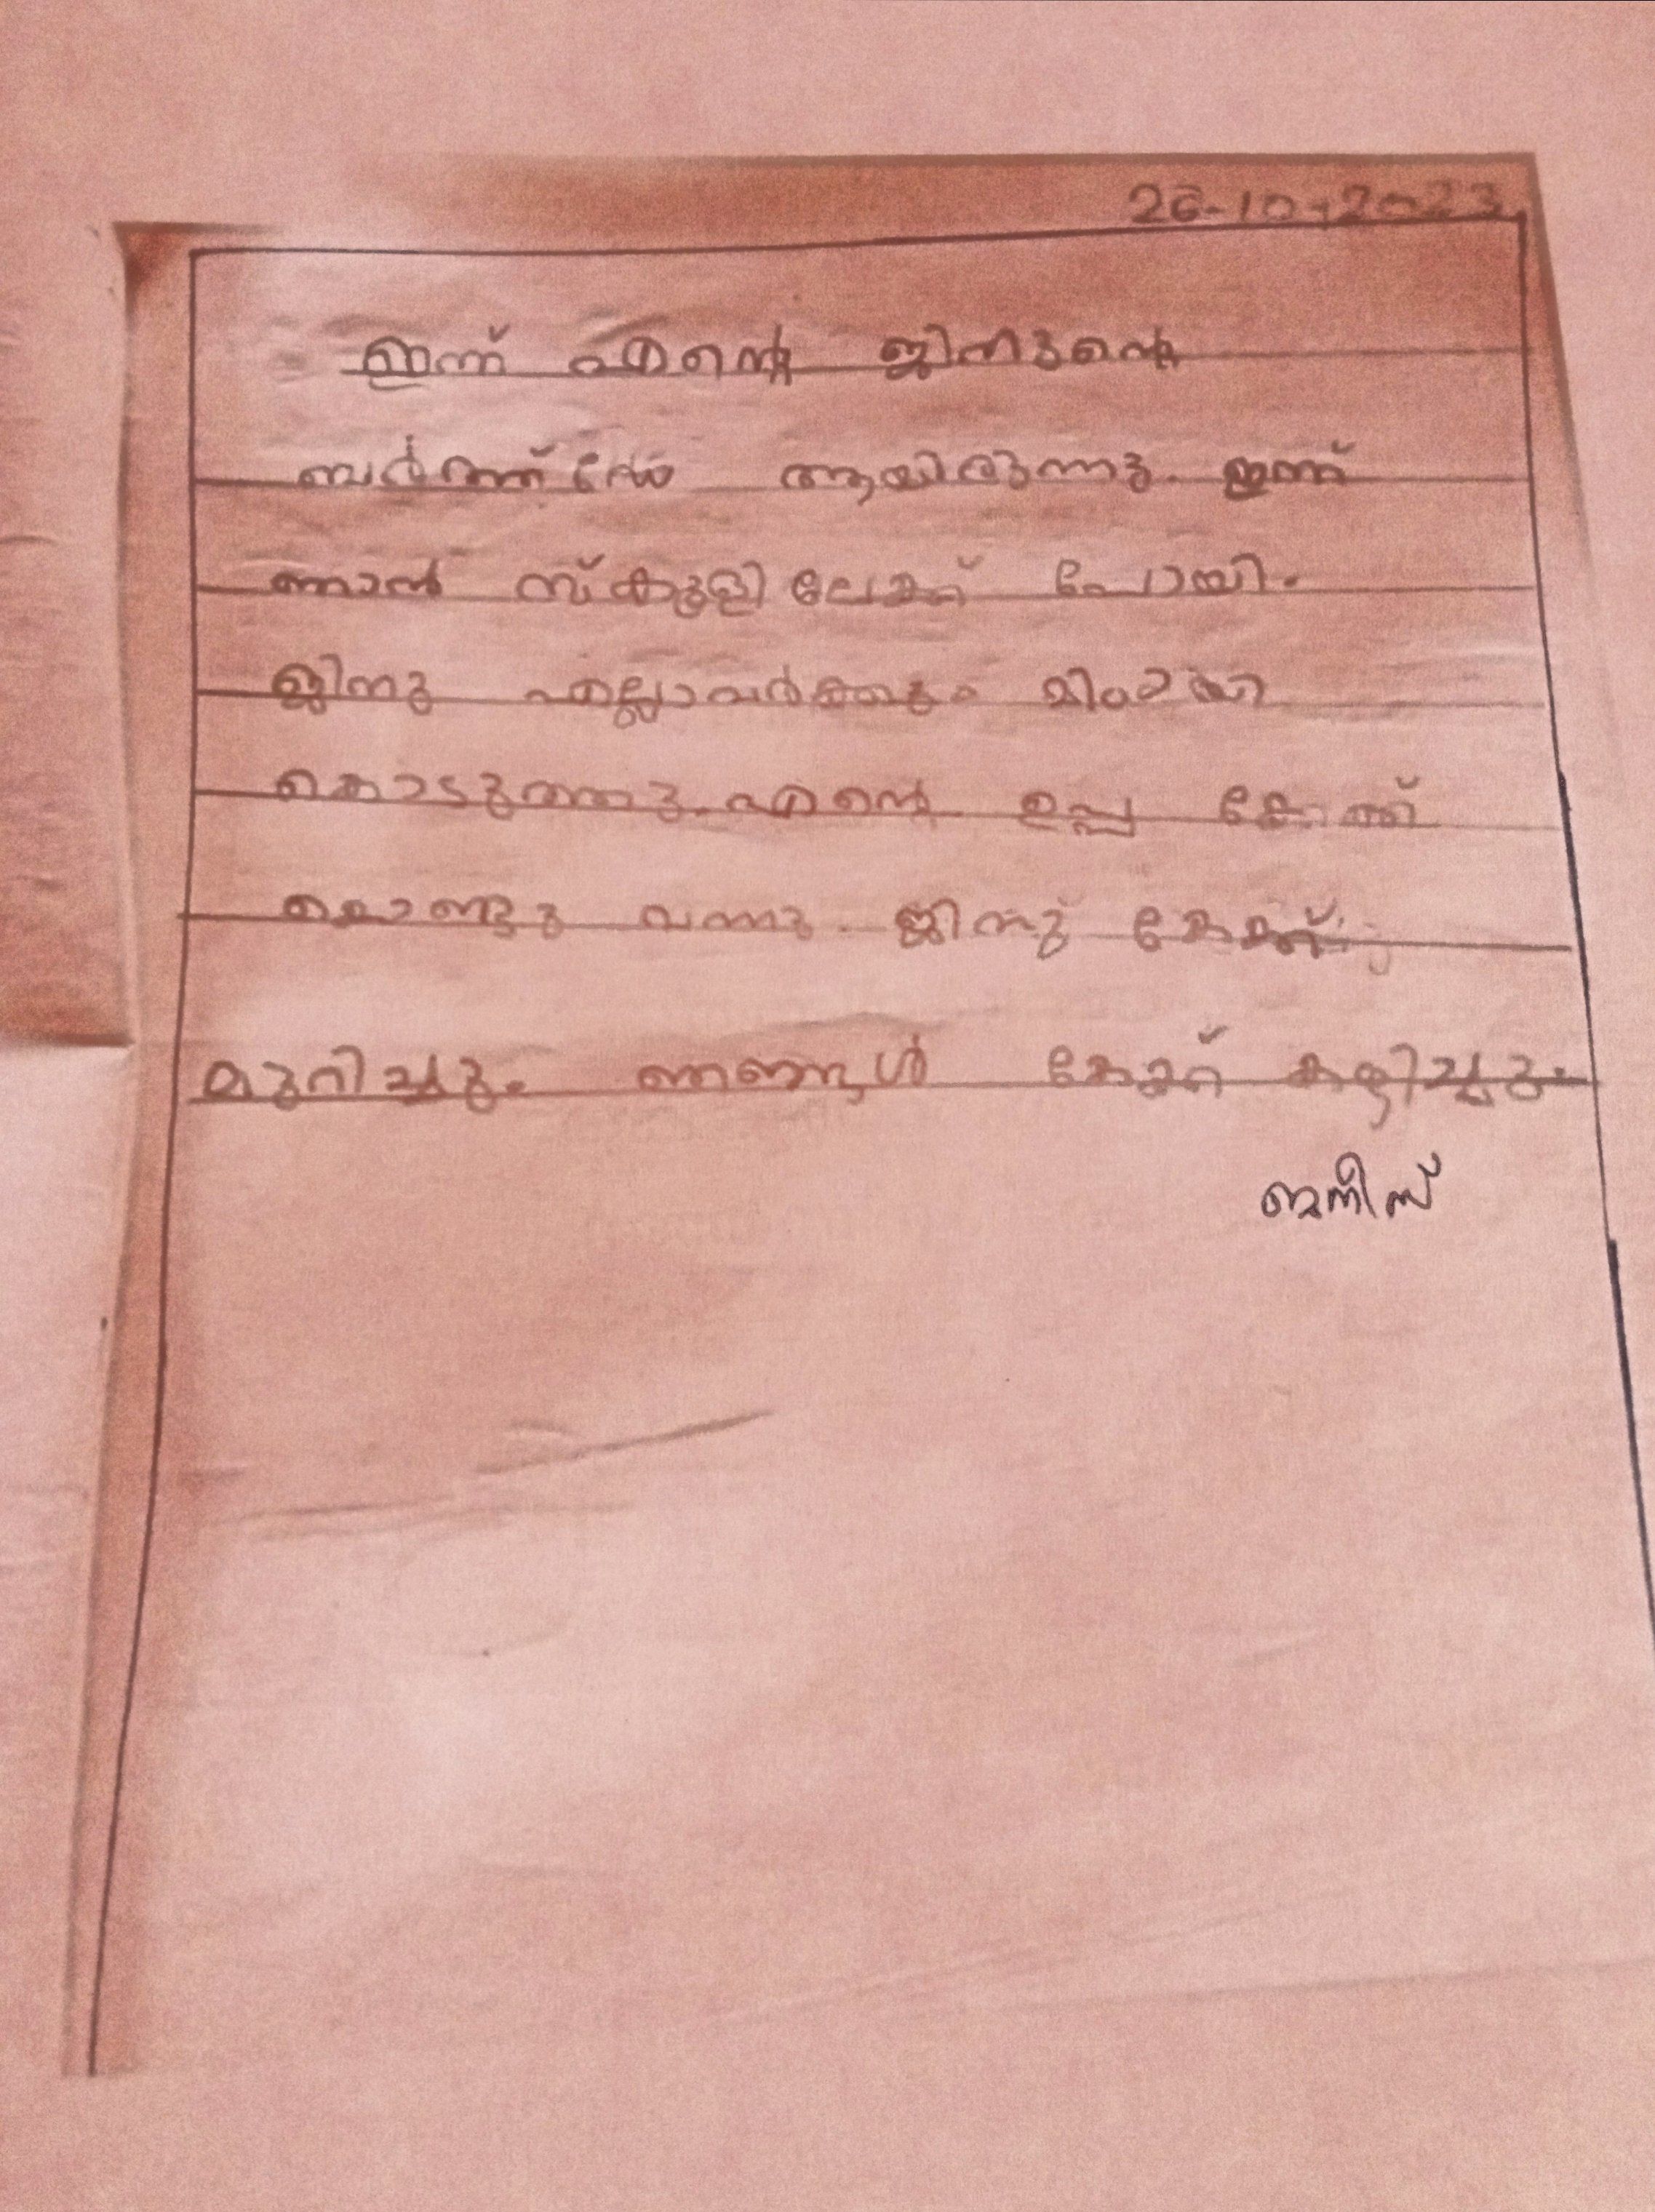 26-10-2023
ഇന്ന് എന്റെ ജിനുന്റെ
ബർത്ത് ഡേ ആയിരുന്നു. ഇന്ന്
ഞാൻ സ്കൂളിലേക്ക് പോയി.
ജിനു എല്ലാവർക്കും മിഠായി
കൊടുത്തു. എന്റെ ഉപ്പ കേക്ക്
കൊണ്ടു വന്നു. ജിനു കേക്ക്
മുറിച്ചും ഞങ്ങൾ കേക്ക് കഴിച്ചും